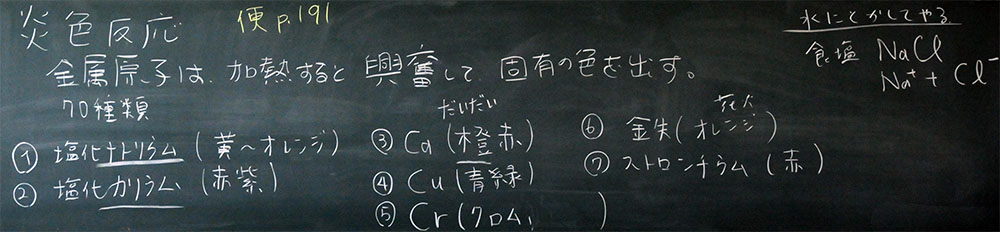 炎色反応 便p.191
金属原子は、加熱すると興奮して、固有の色を出す。
70種類
① 塩化ナトリウム (黄〜オレンジ)
② 塩化カリウム (赤紫)
だいだい
③ Ca (橙赤)
④ Cu (青緑)
⑤ Cr (クロム, )
花火
⑥ 金失 (オレンジ)
⑦ ストロンチウム (赤)
水にとかしてやる
食塩 NaCl
Na⁺ + Cl⁻